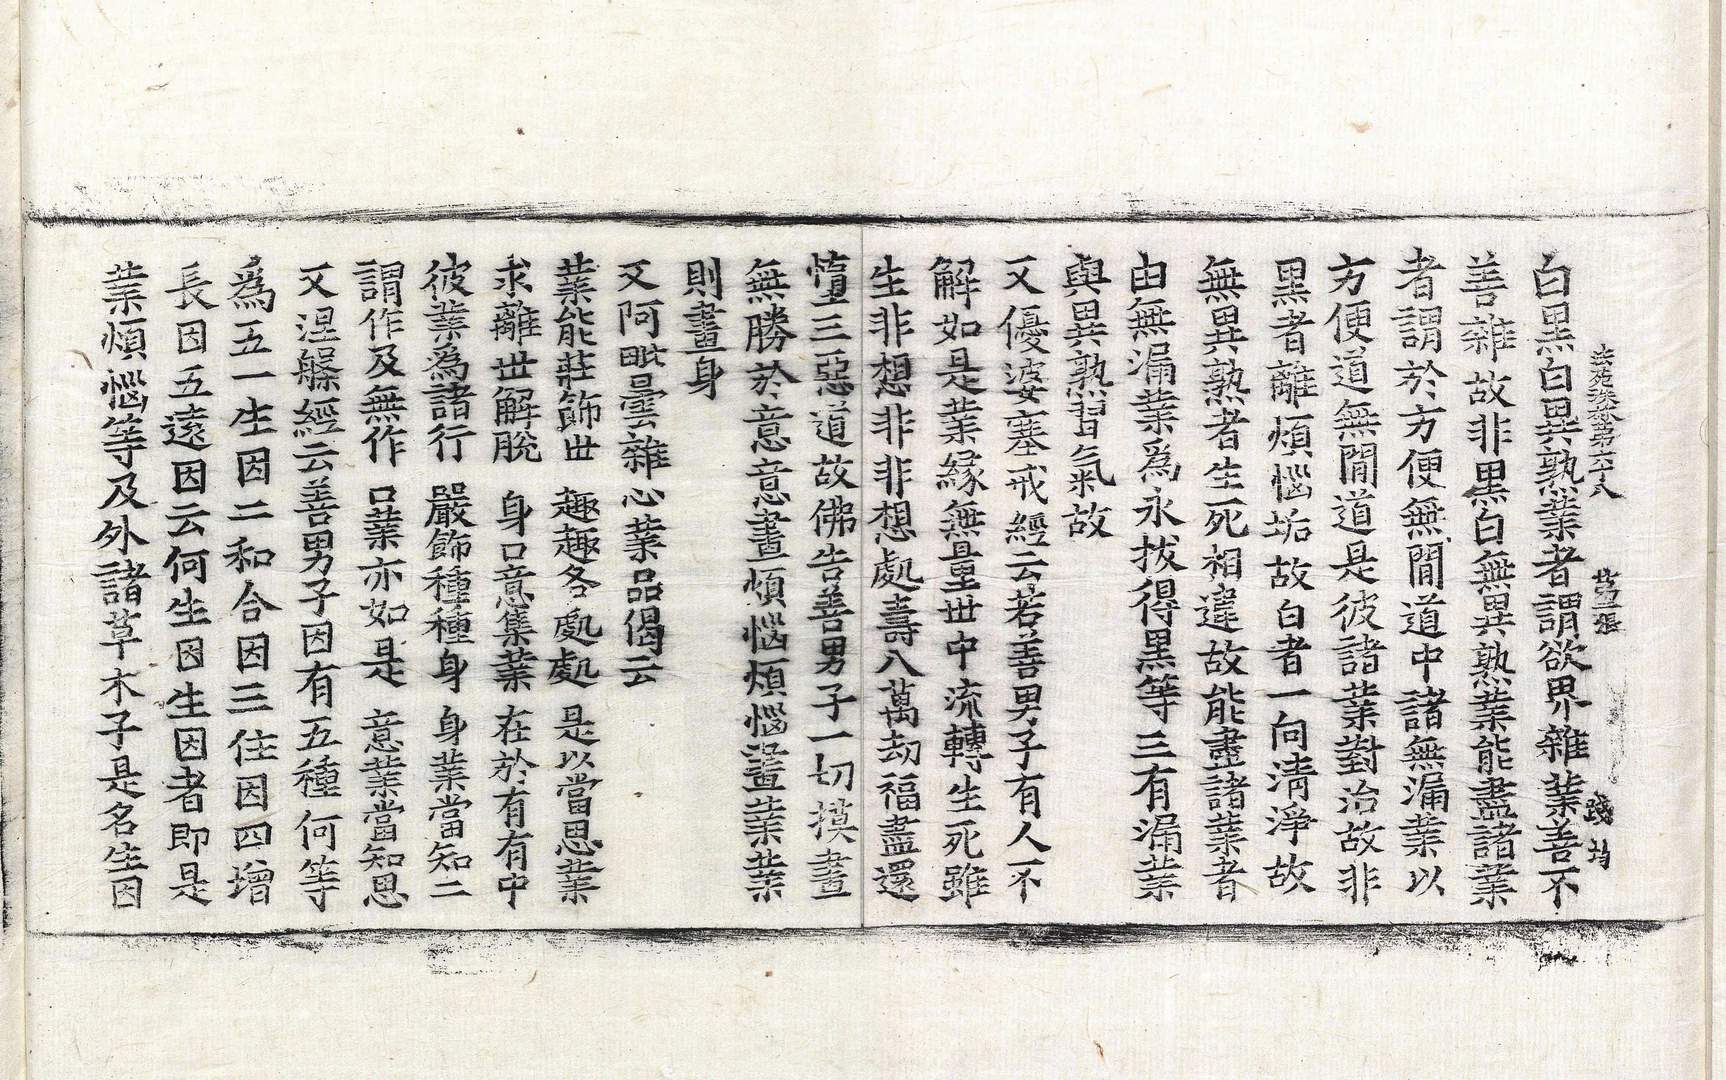 法苑珠林第六十八 第三張 踐
白黑白異熟業者謂欲界雜業善不
善雜故非黑白無異熟業能盡諸業
者謂於方便無閒道中諸無漏業以
方便道無閒道是彼諸業對治故非
黑者離煩惱垢故白者一向清淨故
無異熟者生死相違故能盡諸業者
由無漏業爲永拔得黑等三有漏業
與異熟習氣故
又優婆塞戒經云若善男子有人不
解如是業緣無量世中流轉生死雖
生非想非非想處壽八萬劫福盡還
墮三惡道故佛告善男子一切摸畫
無勝於意意畫煩惱煩惱畫業業
則畫身
又阿毗曇雜心業品偈云
業能莊飾世 趣趣各處處 是以當思業
求離世解脫 身口意集業 在於有有中
彼業爲諸行 嚴飾種種身 身業當知二
謂作及無作 口業亦如是 意業當知思
又涅槃經云善男子因有五種何等
爲五一生因二和合因三住因四增
長因五遠因云何生因生因者即是
業煩惱等及外諸草木子是名生因